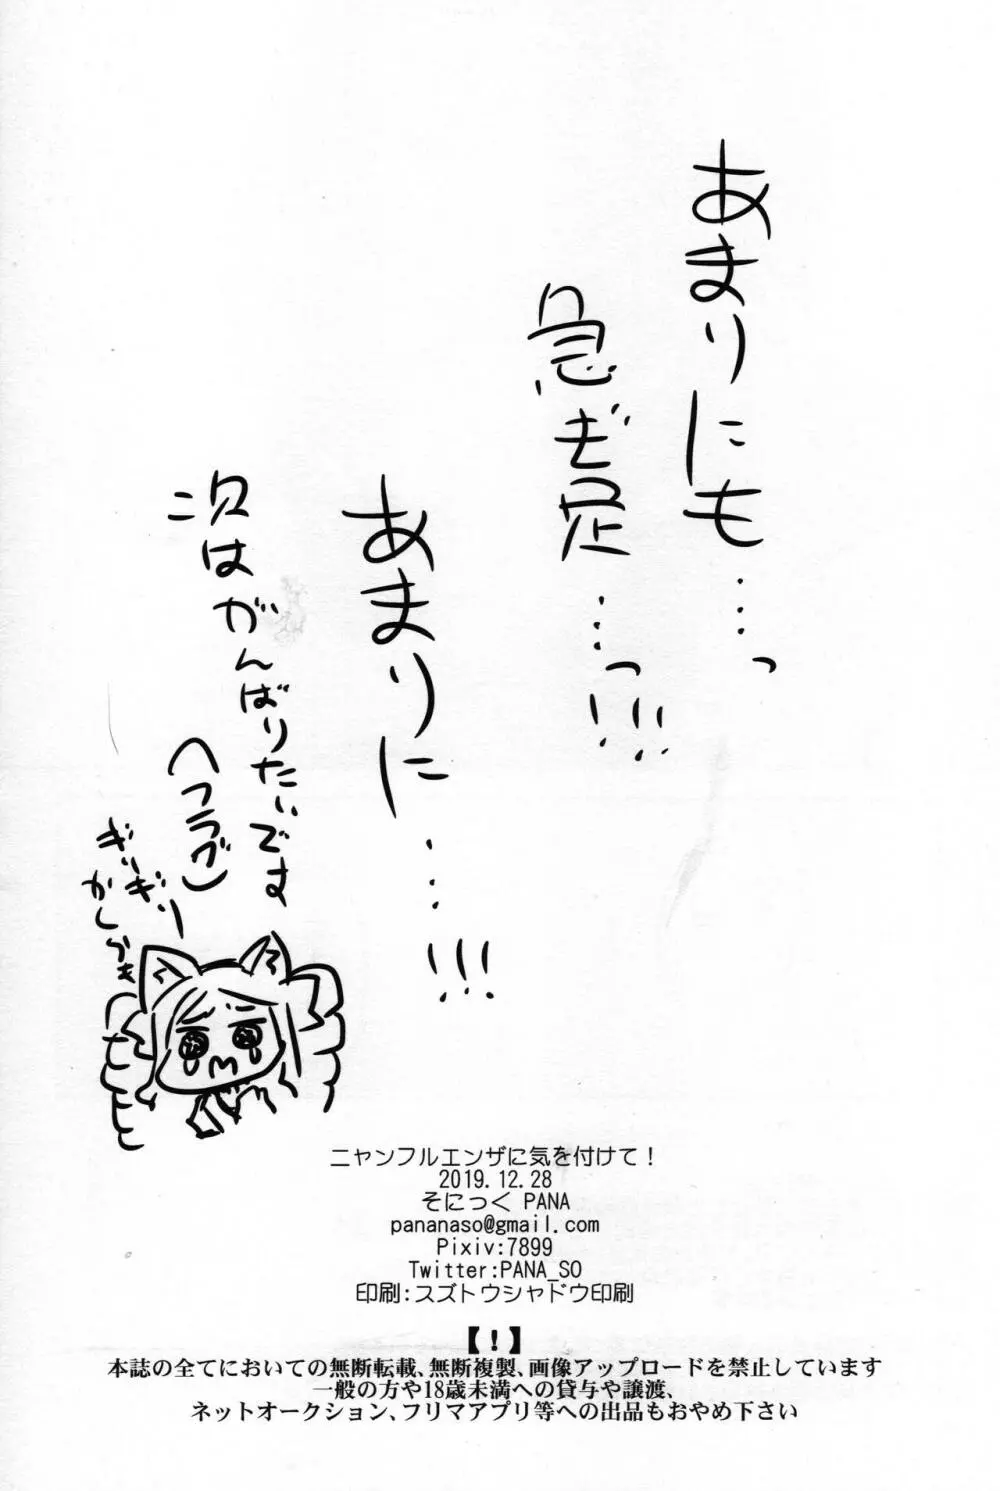 あまりにも…っ
急ぎ足…っ!!!
あまりに…!!!
次はがんばりたいです
(へフラグ)
ギリギリ
ニャンフルエンザに気を付けて!
2019.12.28
そにっく PANA
pananaso@gmail.com
Pixiv:7899
Twitter:PANA_SO
印刷:スズトウシャドウ印刷
【!】
本誌の全てにおいての無断転載、無断複製、画像アップロードを禁止しています
一般の方や18歳未満への貸与や譲渡、
ネットオークション、フリマアプリ等への出品もおやめ下さい